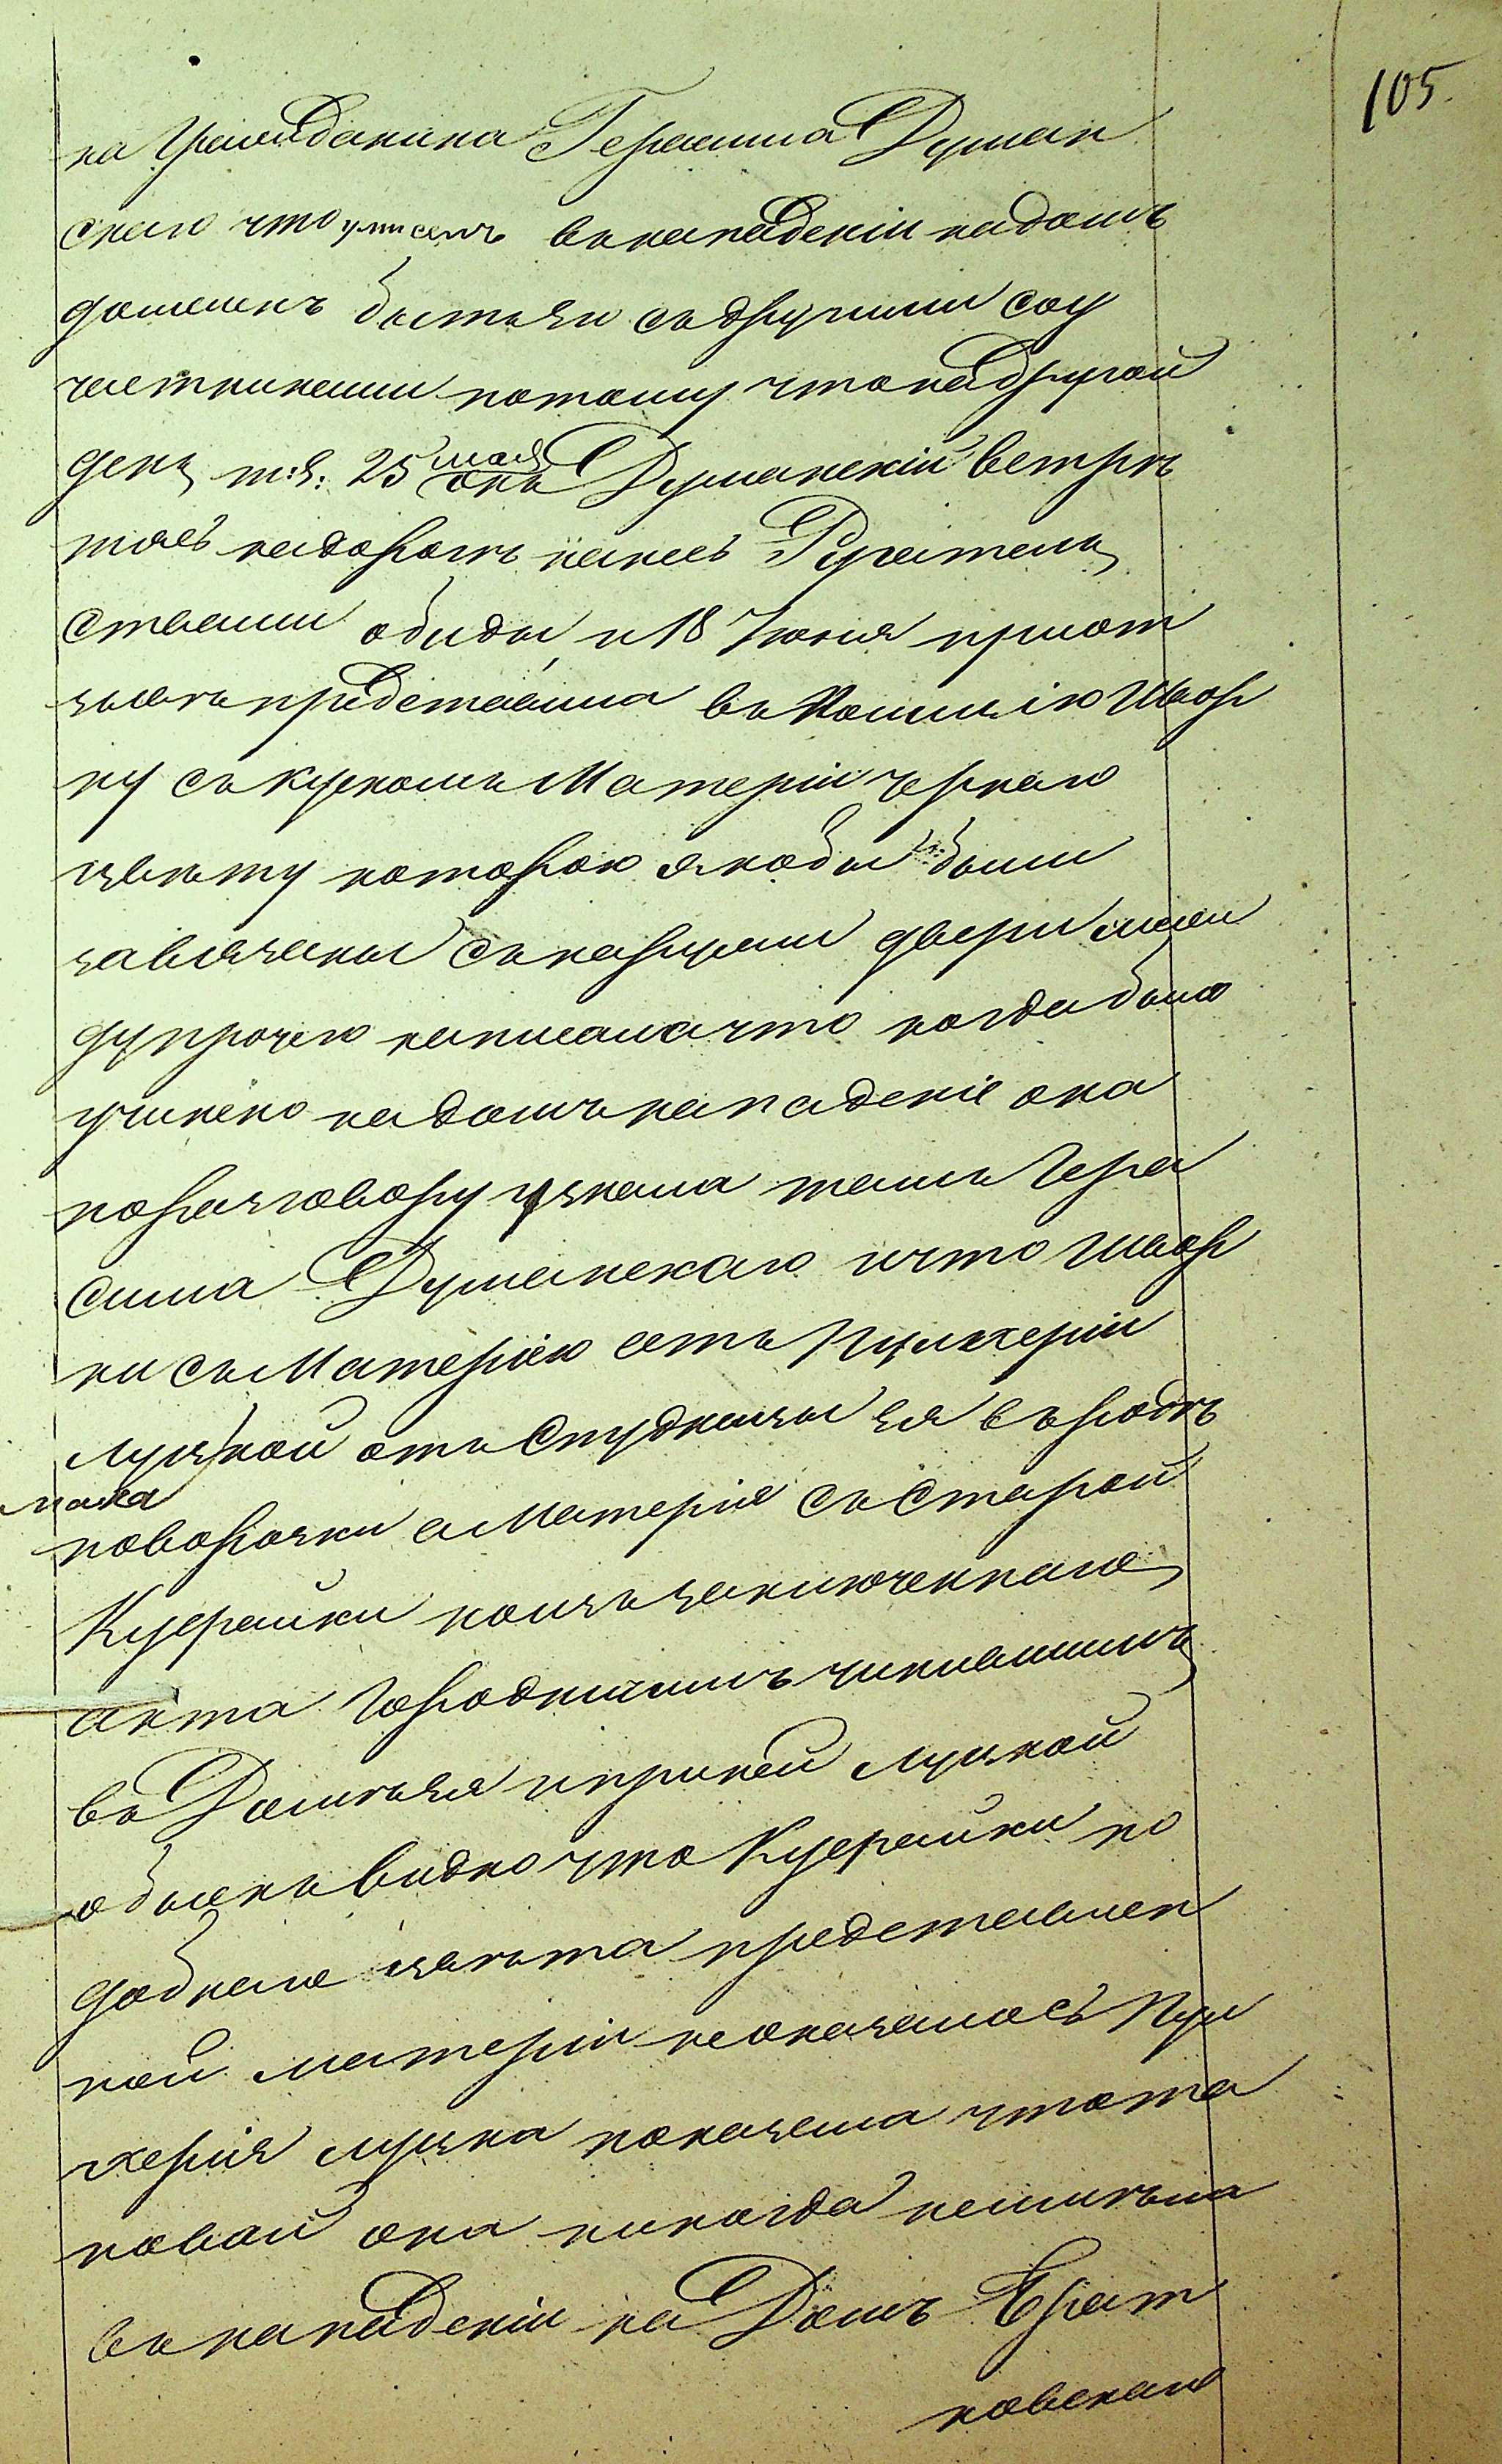 105.
на Гражданина Герасима Думан
скаго что умыселъ въ нападеніи на домъ
долженъ быть съ другими соу
частниками потому что на другой
день т:е: 25 мая онъ Думанскій встрѣ
тясь на дорогѣ нанесъ Ругатель
ствами обиды, и 18 Іюня при от
представила въ Комисію Швор
ку съ кускомъ Матеріи чернаго
цвѣту которою якобы были
завязаны снаружи двери меж
ду прочею написана что когда было
учинено на домъ нападеніе она
по разговору узнала тамъ Гера
сима Думанскаго и что Швор
ки съ Матеріею есть Пулхеріи
Луцкой отъ Студницы
така
поворозки а Матерія съ Старой
Куцрайки заключеннаго
акта Городничимъ чинившимъ
въ Домѣ и при ней Луцкой
обыскъ видно что Куцрайки по
добнаго цвѣта представлен
ной матеріи не оказалось Пул
херія Луцка показала что та
ковой она никогда неимѣла
въ нападеніи на Домъ Брат
ковскаго